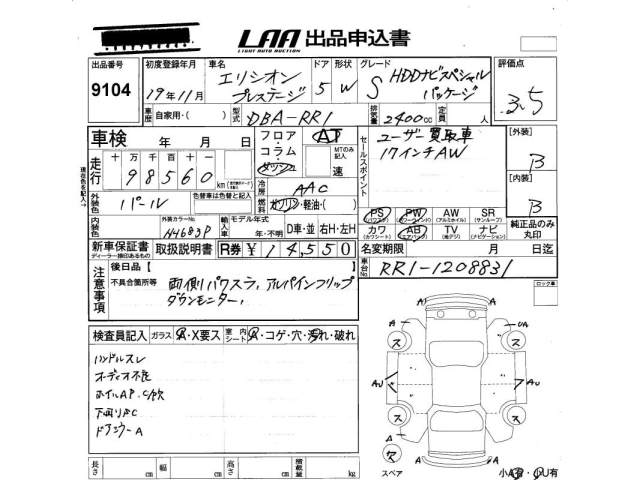 LAA 出品申込書
LIGHT AUTO AUCTION
出品番号 初度登録年月 車名 ドア 形状 グレード 評価点
9104 19年11月 エリシオン プレステージ 5 W S HDDナビスペシャル パッケージ 3.5
車歴 自家用・( ) 型式 DBA-RR1 排気量 2400cc 定員 人
車検 年 月 日 フロア・コラム・ガッツリ AT MTのみ記入 速 セールスポイント ユーザー買取車 [外装]
17インチAW B
走行 十万千百十 98560 km [内装]
冷房 AAC B
外装色 パール 色替車は色替と記入 燃料 ガソリン・軽油・( ) PS パワステ PW パワーウインド AW アルミホイル SR サンルーフ 純正品のみ丸印
内装色 外装カラーNo. NH683P 輸入車 モデル年式 年・不明 D車・並 右H・左H カワ カワシート AB エアバッグ TV 地デジ ナビ ナビゲーション
新車保証書 ディーラー捺印あるもの 取扱説明書 R券 ¥14,550 名変期限 月 日迄
注意事項 後日品【 】 車台No. RR1-1208831
不具合箇所等 両側パワスラ, アルパインフリップ
ダウンモニター,
ロック車
検査員記入 ガラス A・X要ス 室内シート A・コゲ・穴・汚れ・破れ
ハンドルスレ
オーディオ不良
ホイルAP.C/欠
下回りSC
ドアミラーA
A A
A UA
ス ス
AU AU
ス ス
A
ス
長さ cm 幅 cm 高さ cm 積載量 kg スペア 小A有・小U有